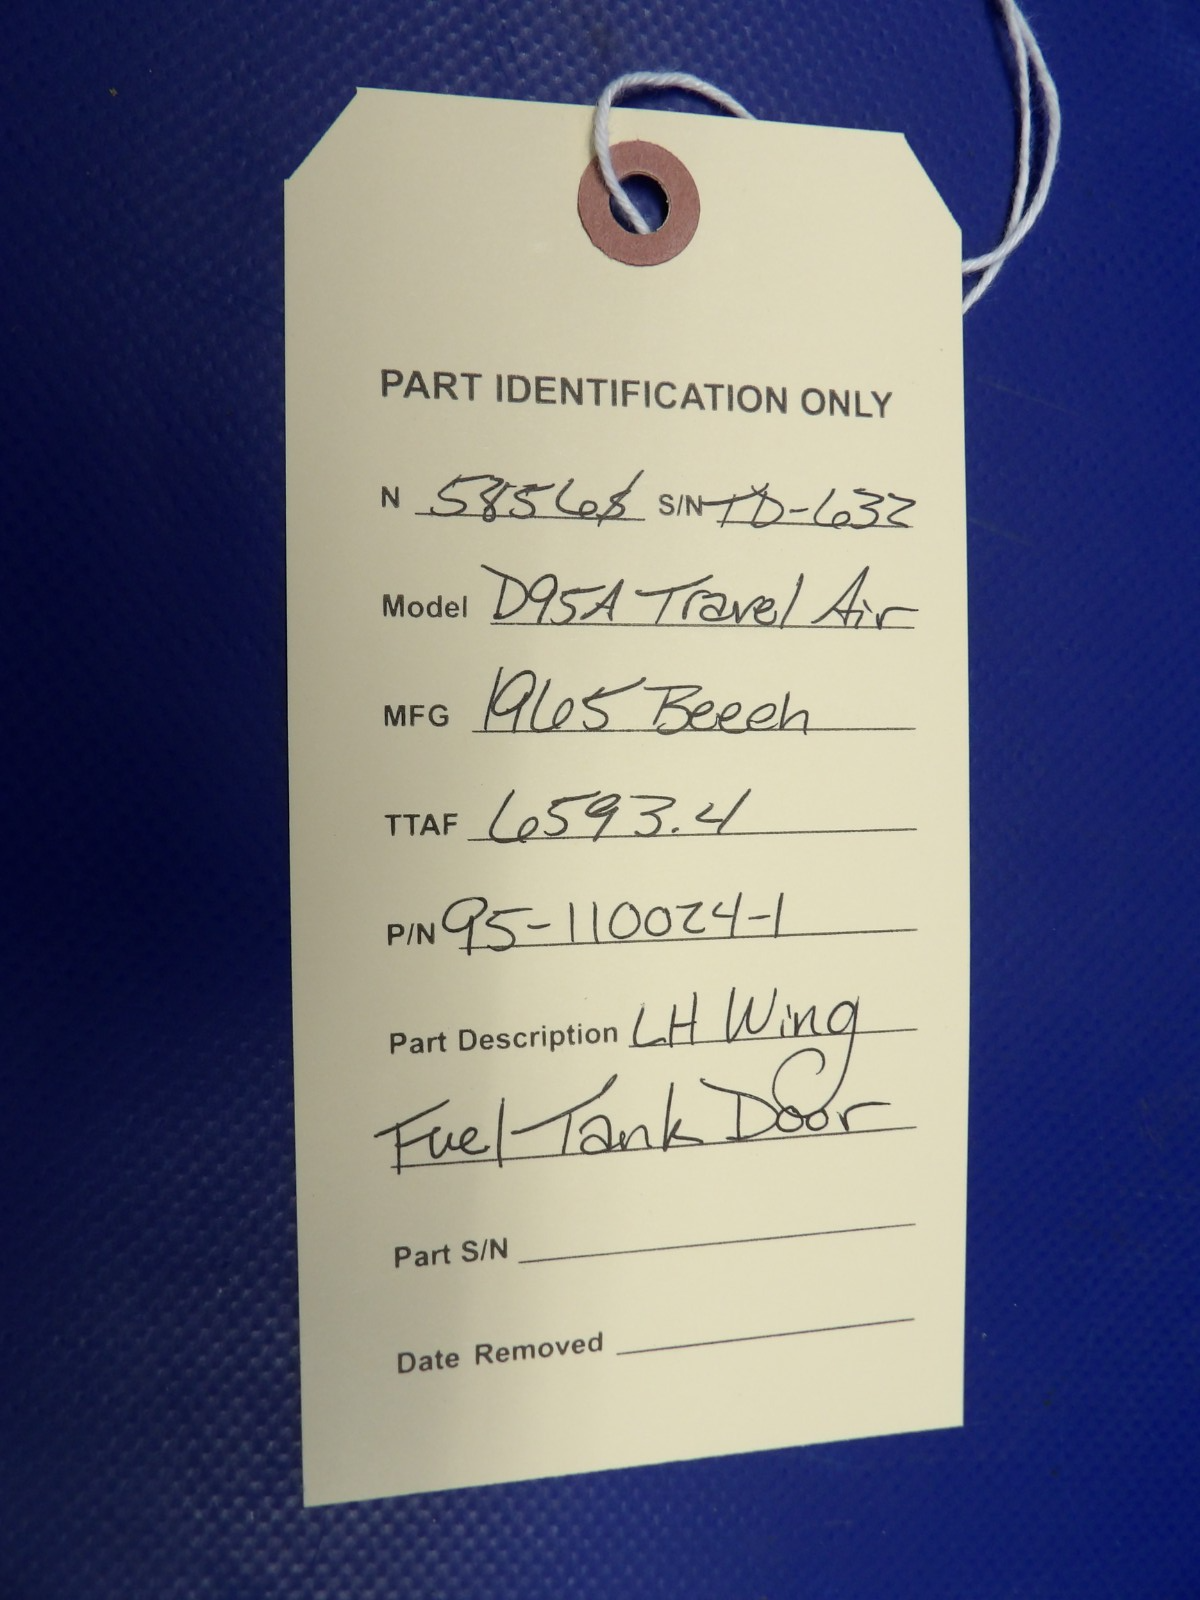 PART IDENTIFICATION ONLY
N 5856S S/N TD-632
Model D95A Travel Air
MFG 1965 Beech
TTAF 6593.4
P/N 95-110024-1
Part Description LH Wing
Fuel Tank Door
Part S/N
Date Removed